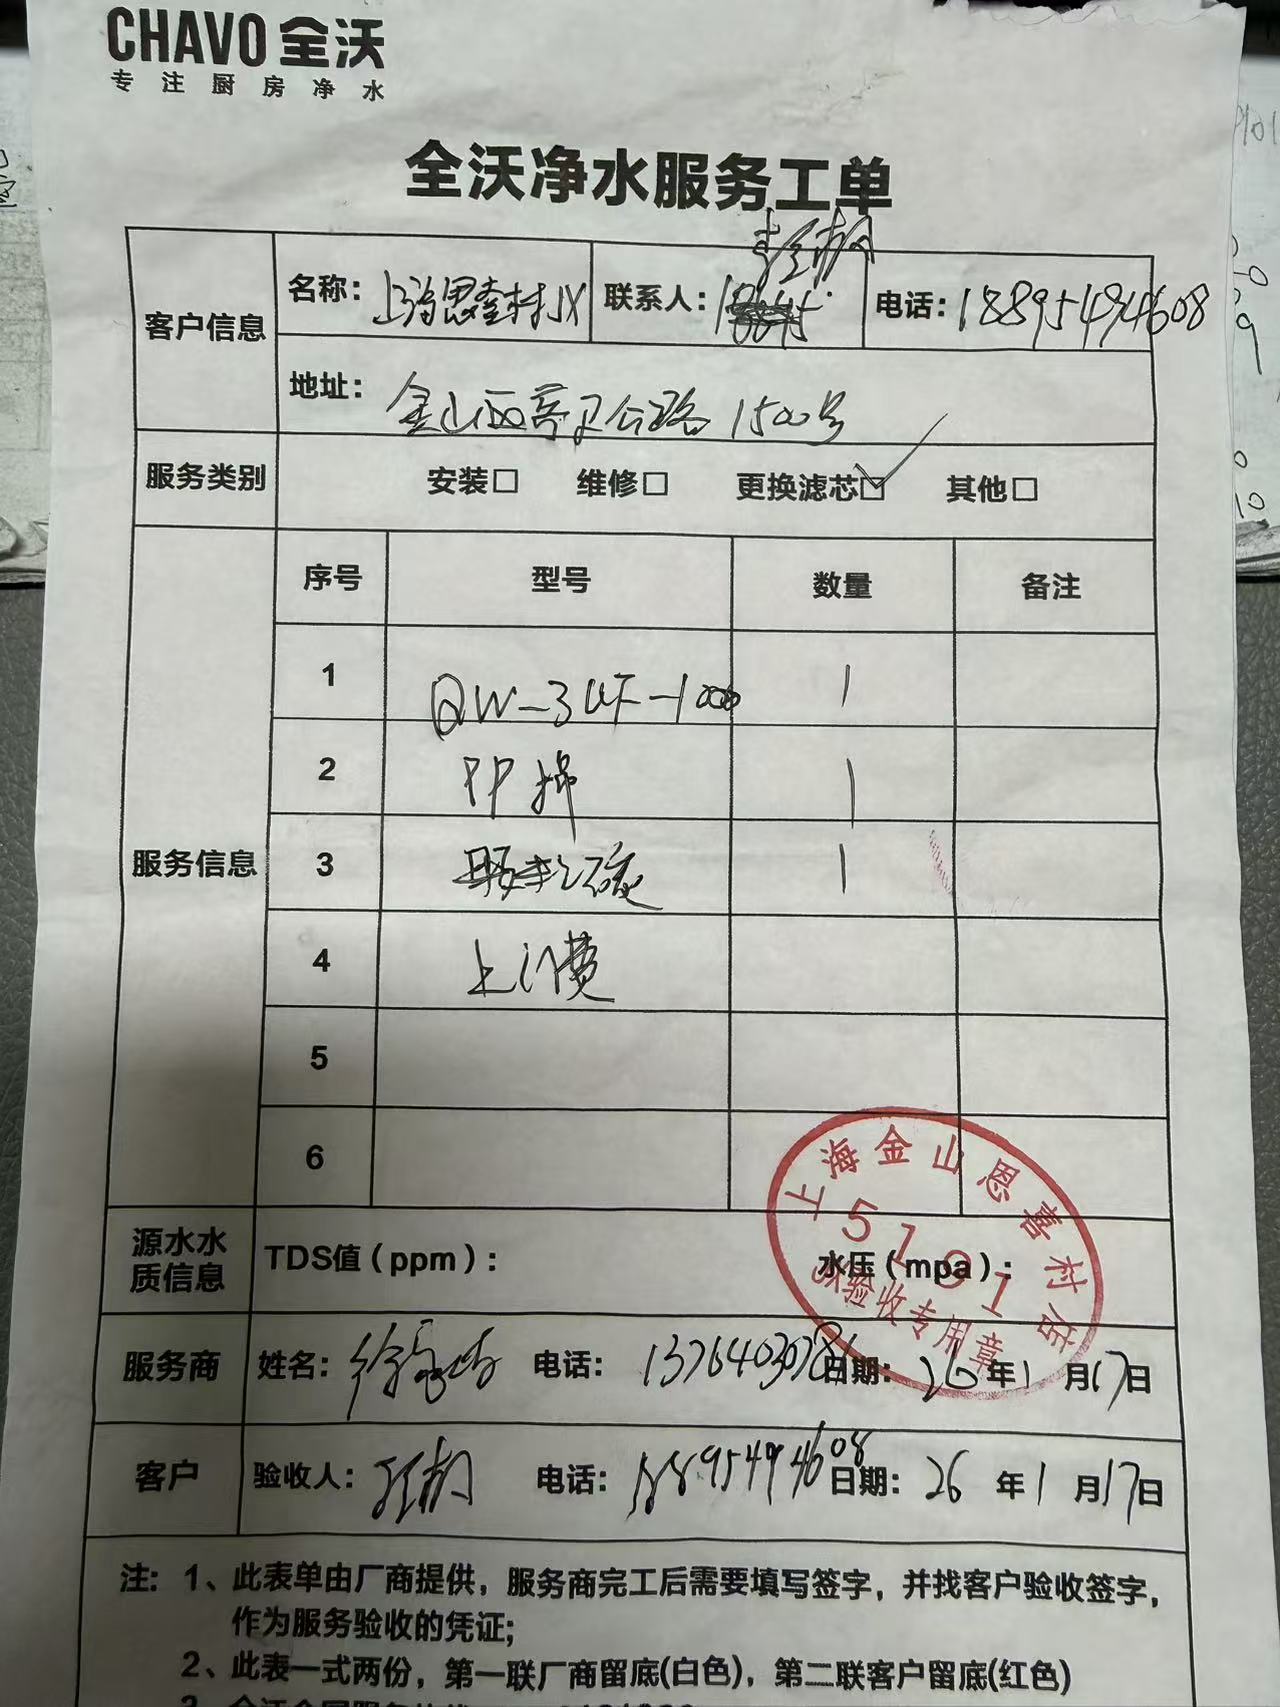 CHAVO 全沃
专注厨房净水
全沃净水服务工单
客户信息
名称：上海恩喜村
联系人：
电话：18895494608
地址：金山 卫公路1500号
服务类别
安装□ 维修□ 更换滤芯☑ 其他□
服务信息
序号 型号 数量 备注
1 QW-3UF-1000 1
2 PP棉 1
3 1
4 上门费
5
6
上海金山恩喜村店
5191
验收专用章
源水水质信息
TDS值（ppm）： 水压（mpa）：
服务商 姓名：徐 电话：1376403078 日期：26年1月17日
客户 验收人： 电话：18895494608 日期：26年1月17日
注：1、此表单由厂商提供，服务商完工后需要填写签字，并找客户验收签字，
作为服务验收的凭证；
2、此表一式两份，第一联厂商留底(白色)，第二联客户留底(红色)